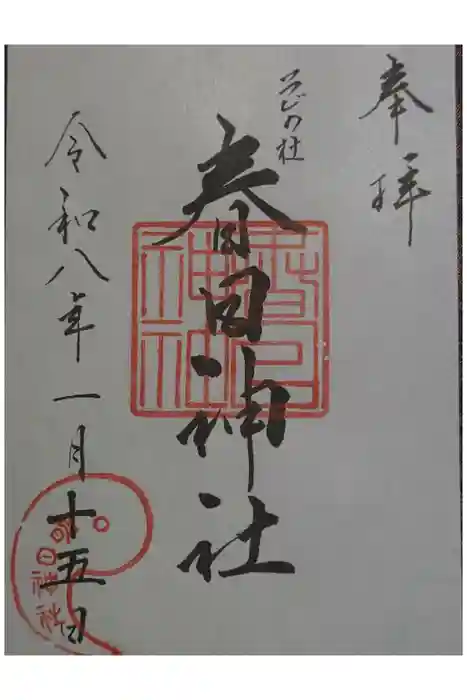 奉拝
の社
春日神社
春日神社
令和八年一月十五日
日神社